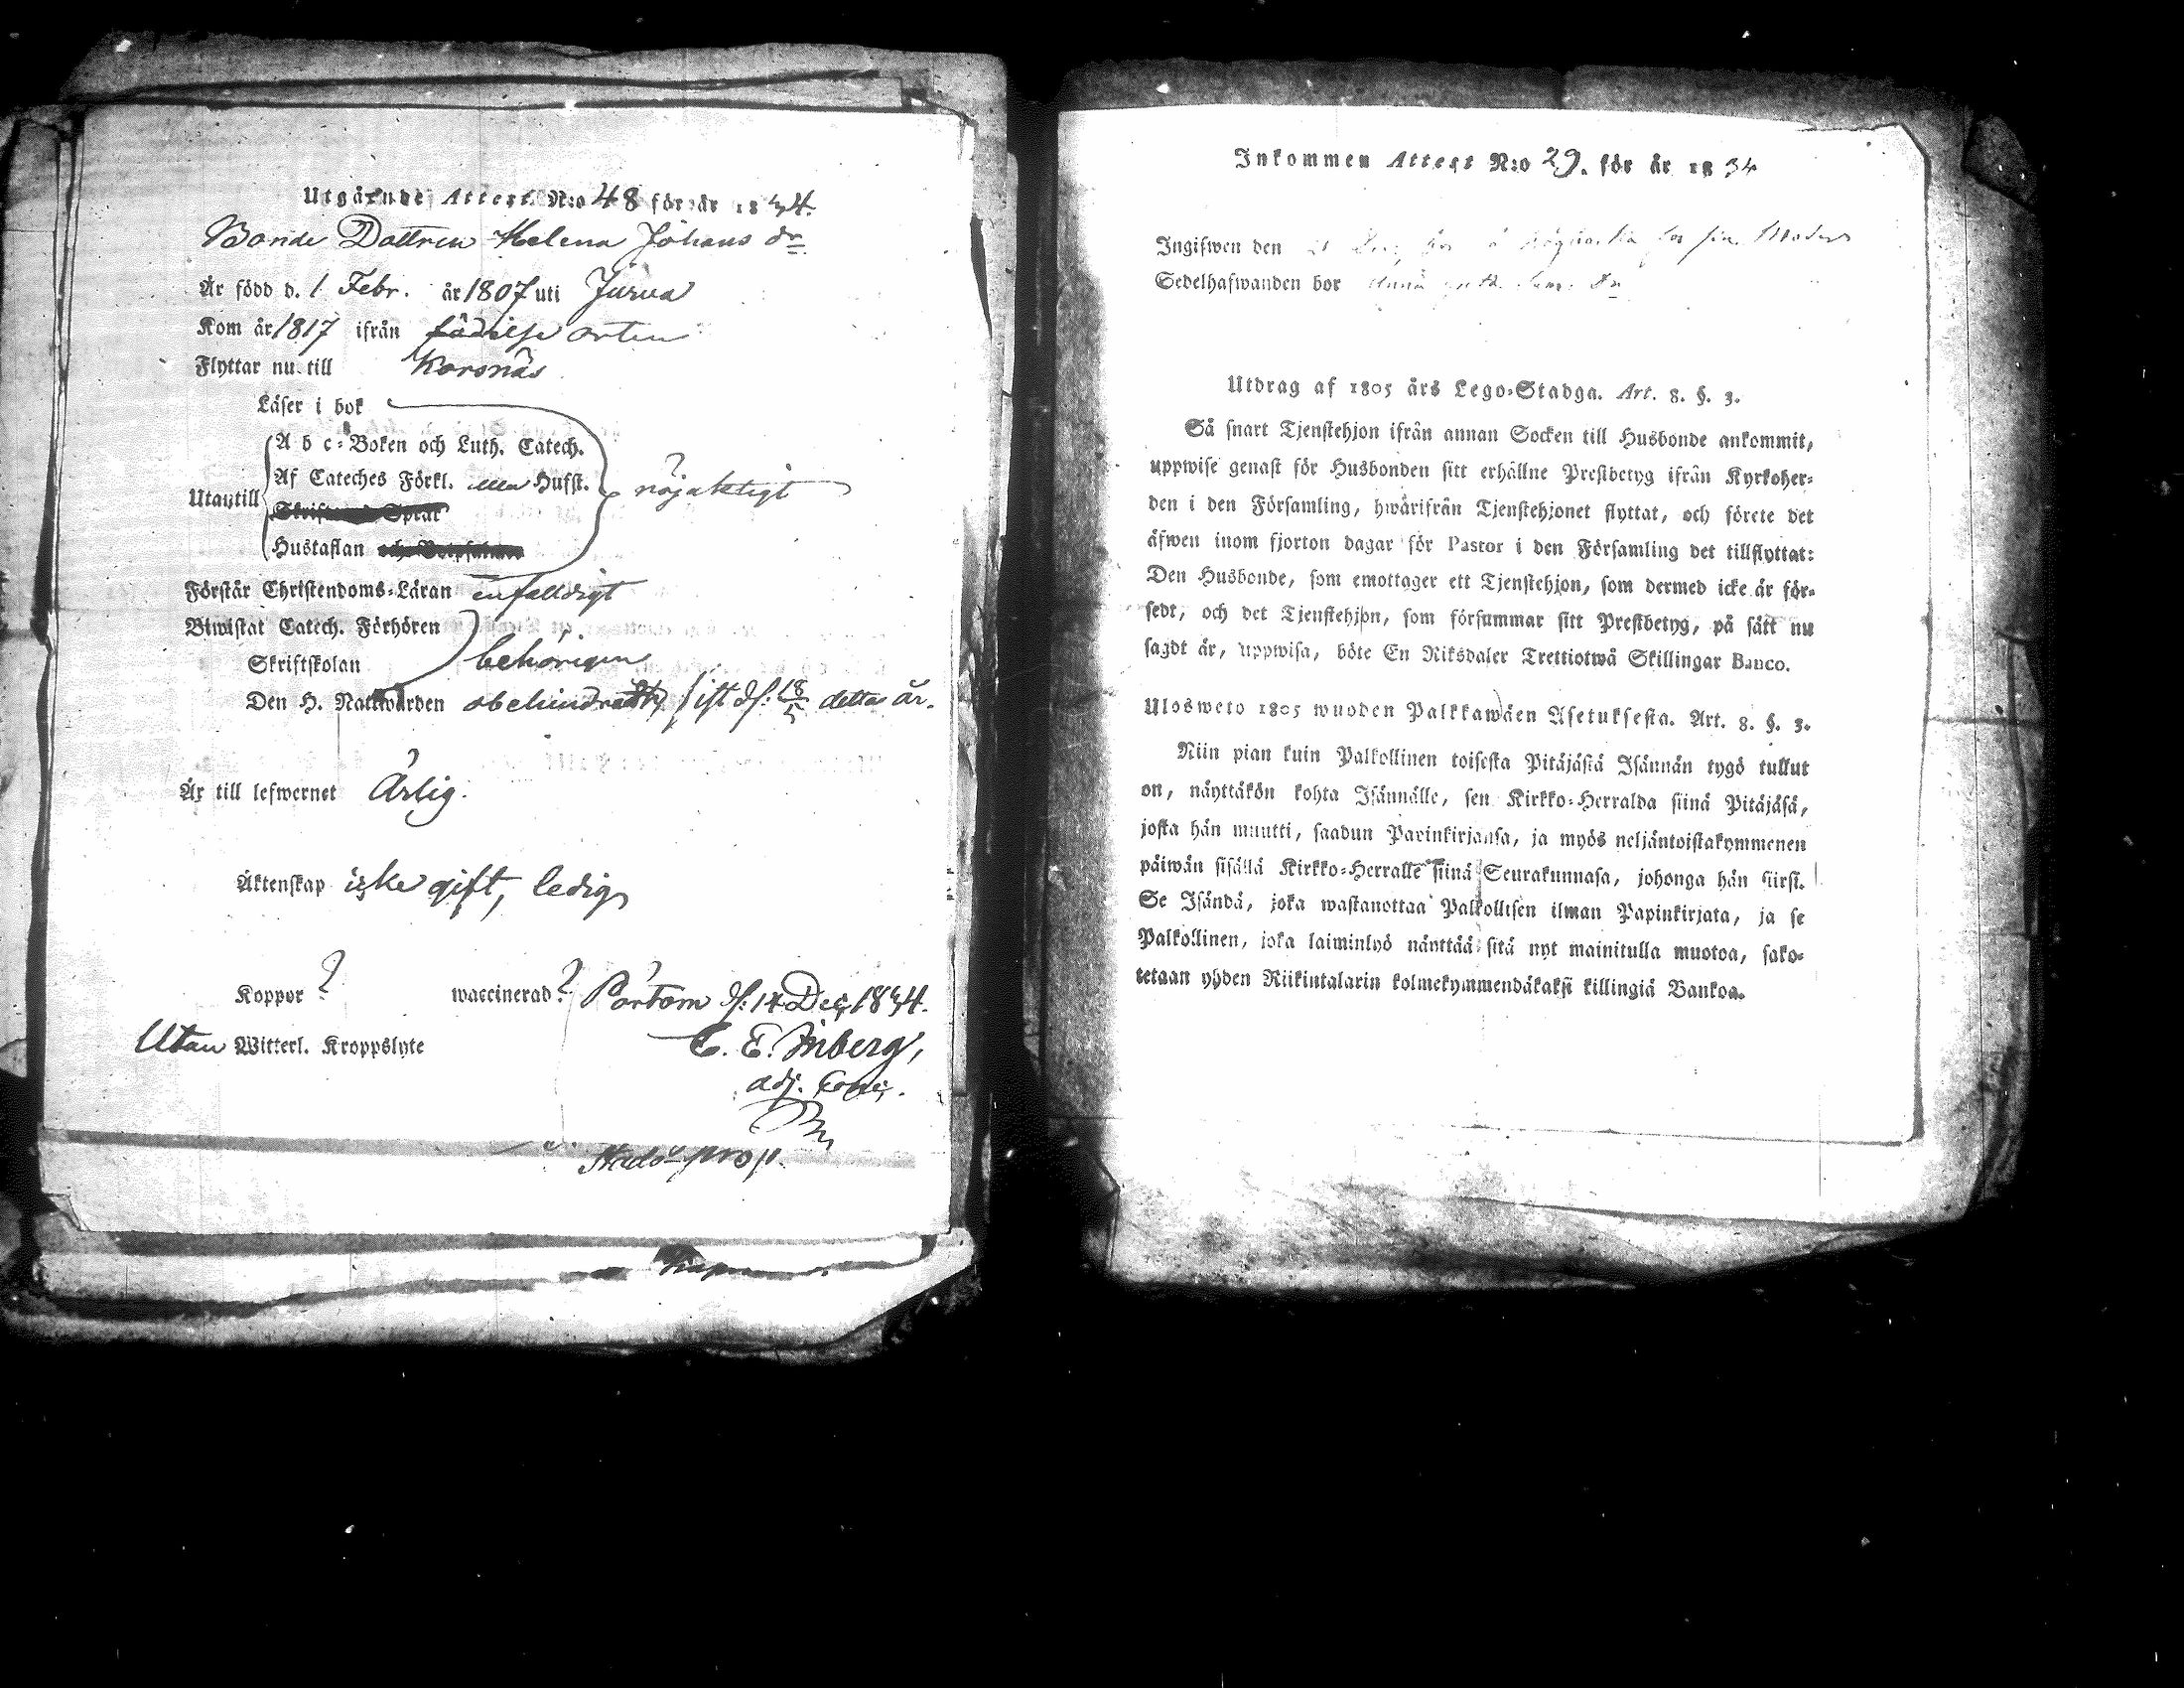 Utgående Attest N:o 48 för år 1834.
Bonde Dottren Helena Johans dr
Är född d. 1 Febr. år 1807 uti Jurva
Kom år 1817 ifrån födelse orten
Flyttar nu till Korsnäs
Läser i bok
A b c-Boken och Luth. Catech.
Af Cateches Förkl. Hufst. nöjaktigt
Utantill
Hustaflan
Förstår Christendoms-Läran enfalldigt
Biwistat Catech. Förhören
Skriftskolan behörigen
Den H. Nattwarden obehindradt, sist d. 18/5 detta år.
Är till lefwernet Ärlig.
Äktenskap icke gift, ledig
Koppor ? waccinerad ? Pörtom d. 14 Dec. 1834.
Utan Witterl. Kroppslyte
C. E.
adj.
Inkommen Attest N:o 29. för år 1834
Ingifwen den
Sedelhafwanden bor
Utdrag af 1805 års Lego-Stadga. Art. 8. §. 3.
Så snart Tjenstehjon ifrån annan Socken till Husbonde ankommit,
uppwise genast för Husbonden sitt erhållne Prestbetyg ifrån Kyrkoher-
den i den Församling, hwarifrån Tjenstehjonet flyttat, och förete det
äfwen inom fjorton dagar för Pastor i den Församling det tillflyttat:
Den Husbonde, som emottager ett Tjenstehjon, som dermed icke är för-
sedt, och det Tjenstehjon, som försummar sitt Prestbetyg, på sätt nu
sagdt är, uppwisa, böte En Riksdaler Trettiotwå Skillingar Banco.
Ulosweto 1805 wuoden Palkkawäen Asetuksesta. Art. 8. §. 3.
Niin pian kuin Palkollinen toisesta Pitäjästä Isännän tygö tullut
on, näyttäkön kohta Isännälle, sen Kirkko-Herralda siinä Pitäjäsä,
josta hän muutti, saadun Papinkirjansa, ja myös neljäntoistakymmenen
päiwän sisällä Kirkko-Herralle siinä Seurakunnasa, johonga hän siirsi.
Se Isändä, joka wastanottaa Palkollisen ilman Papinkirjata, ja se
Palkollinen, joka laiminlyö näyttää sitä nyt mainitulla muotoa, sako-
tetaan yhden Riikintalarin kolmekymmendäkaksi killingiä Bankoa.